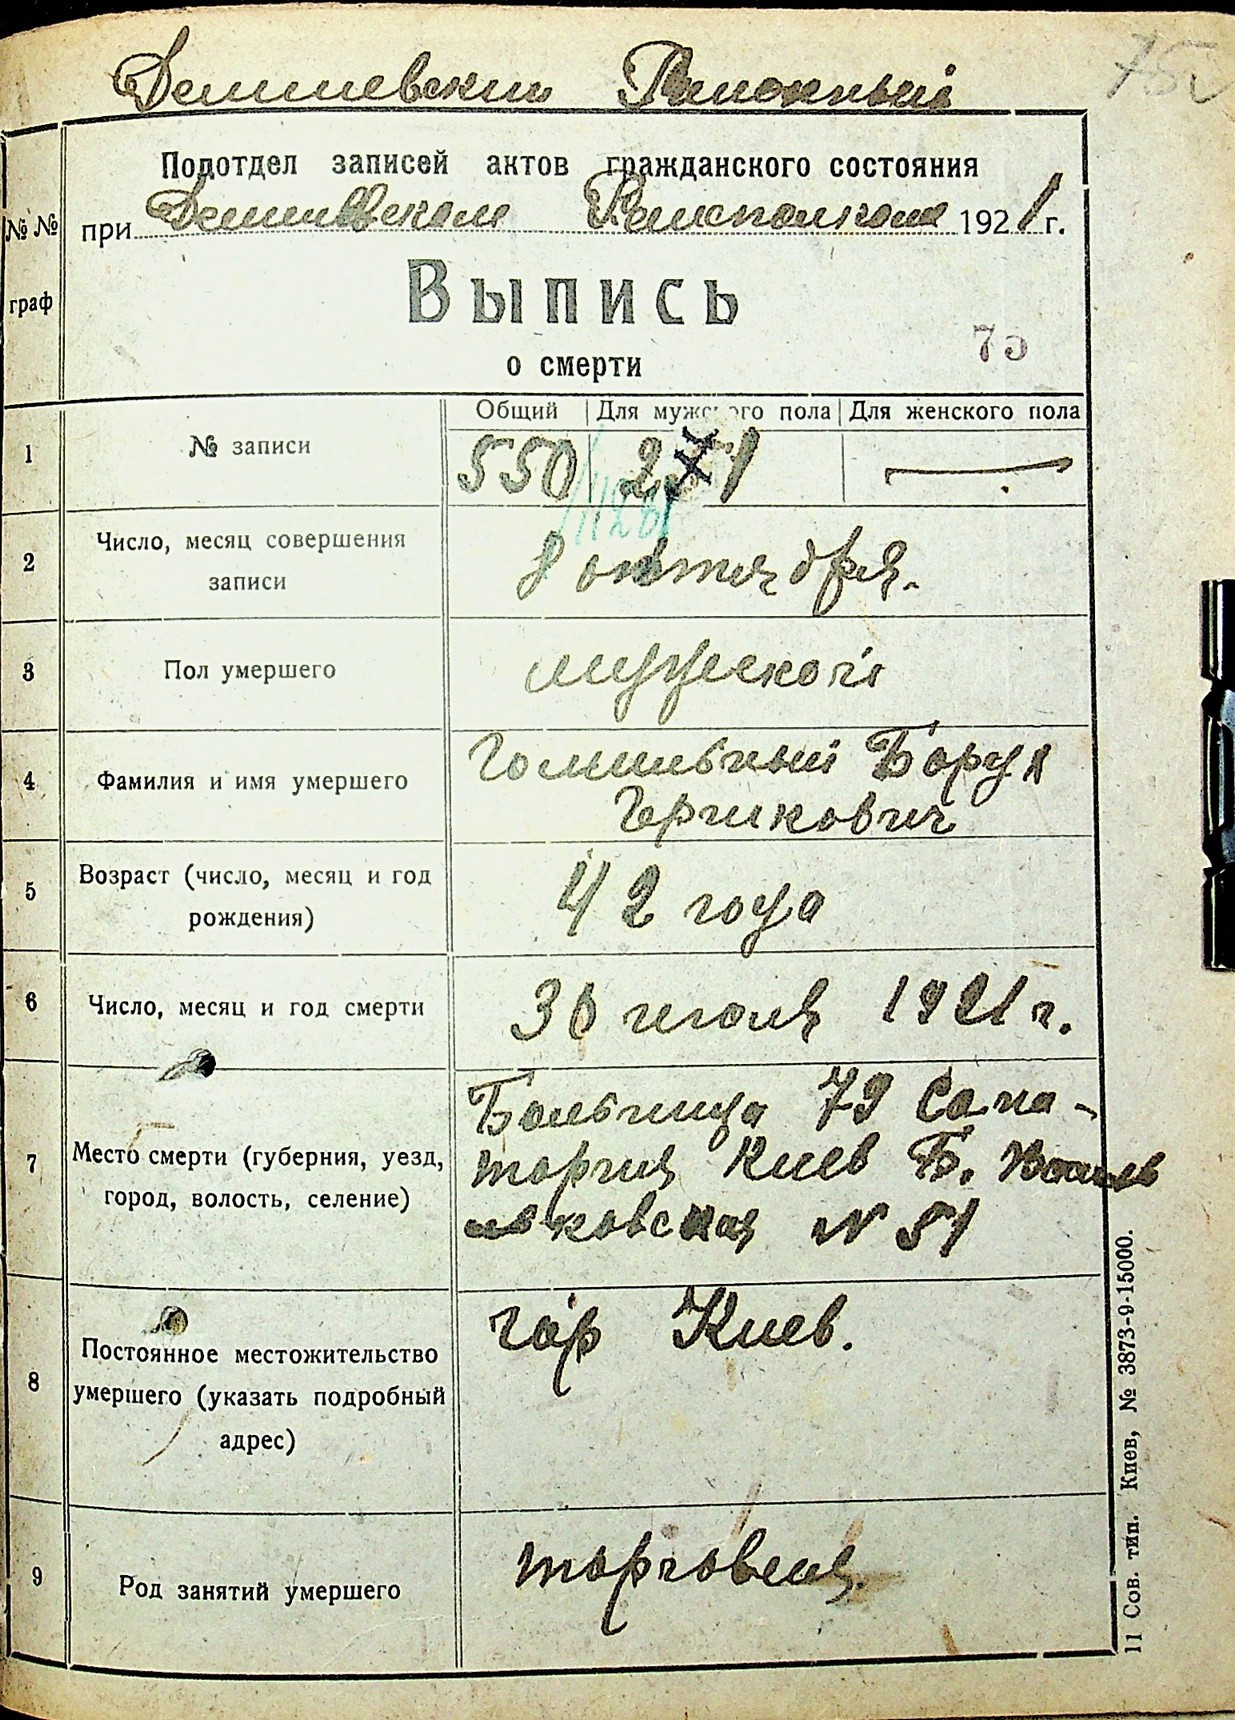 75
Демиевский Районный
Подотдел записей актов гражданского состояния
при Демиевском Райисполкоме 1921 г.
№ №
граф
Выпись
о смерти
75
Общий Для мужского пола Для женского пола
1 № записи 550 251 —
1126
2 Число, месяц совершения
записи
8 октября.
3 Пол умершего мужской
4 Фамилия и имя умершего
Гомильный Борух
Гершкович
5 Возраст (число, месяц и год
рождения)
42 года
6 Число, месяц и год смерти 30 июля 1921 г.
7 Место смерти (губерния, уезд,
город, волость, селение)
Больница 79 Сана-
тория Киев Б. Василь
ьковская № 51
8 Постоянное местожительство
умершего (указать подробный
адрес)
гор Киев.
9 Род занятий умершего торговец.
11 Сов. тип. Киев, № 3873-9-15000.